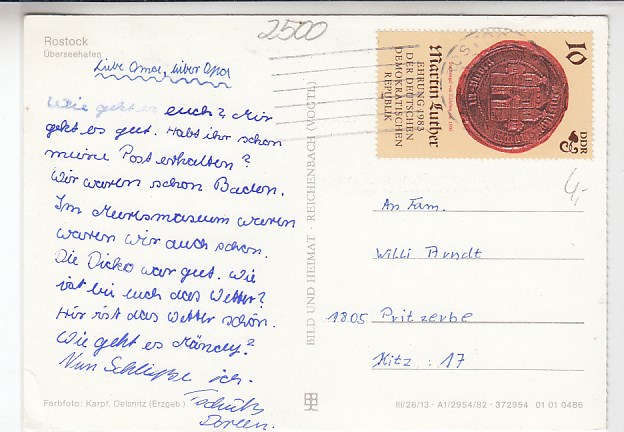 2500
Rostock
Überseehafen
Liebe Oma, Lieber Opa
Wie geht es euch? Mir
geht es gut. Habt ihr schon
meine Post erhalten?
Wir waren schon Baden.
Im Meeresmuseum waren
waren wir auch schon.
Die Disko war gut. Wie
ist bei euch das Wetter?
Hir ist das Wetter schön.
Wie geht es Mändy?
Nun Schließe ich.
Tschüß
Doreen.
BILD UND HEIMAT · REICHENBACH (VOGTL)
10
DDR
Martin Luther
EHRUNG 1983
DER DEUTSCHEN
DEMOKRATISCHEN
REPUBLIK
4,-
An Fam.
Willi Arndt
1805 Pritzerbe
Kitz: 17
Farbfoto: Karpf, Oelsnitz (Erzgeb.)
III/26/13 · A1/2954/82 · 372954 01 01 0486